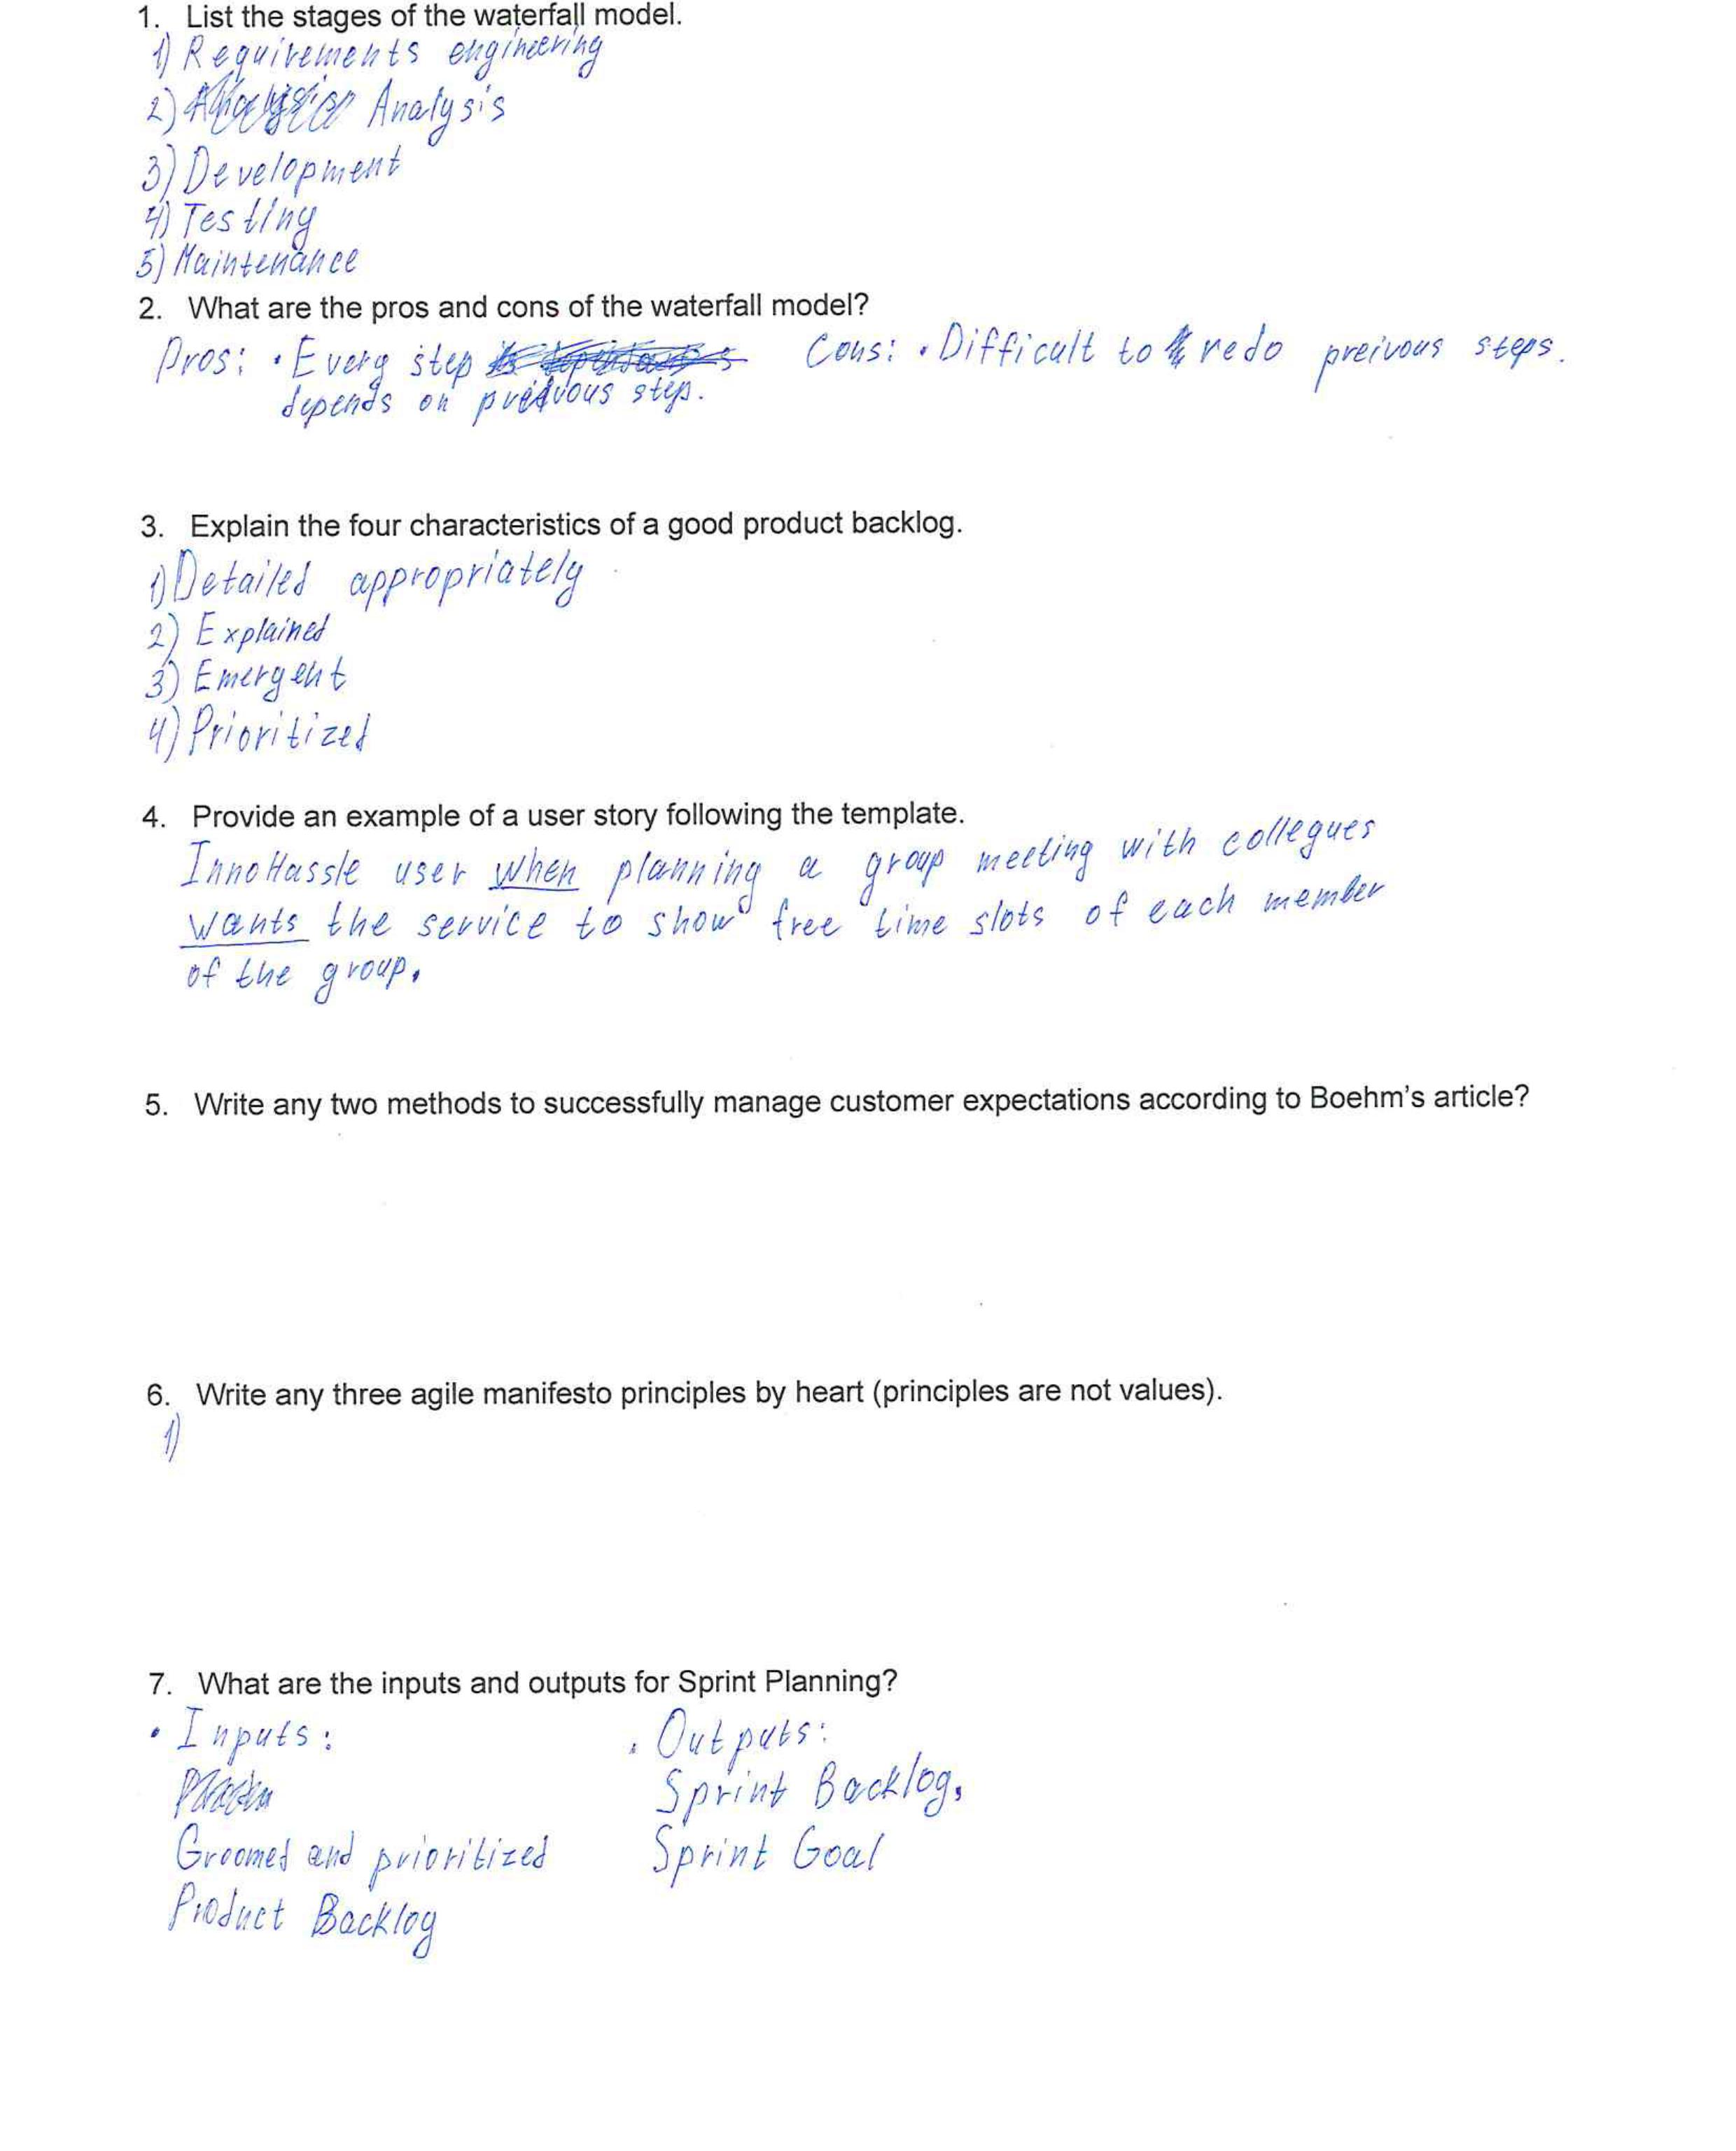 1. List the stages of the waterfall model.
1) Requirements engineering
2) Analysis
3) Development
4) Testing
5) Maintenance
2. What are the pros and cons of the waterfall model?
Pros: · Every step Cons: · Difficult to redo preivous steps.
depends on previous step.
3. Explain the four characteristics of a good product backlog.
1) Detailed appropriately
2) Explained
3) Emergent
4) Prioritized
4. Provide an example of a user story following the template.
InnoHassle user when planning a group meeting with collegues
wants the service to show free time slots of each member
of the group.
5. Write any two methods to successfully manage customer expectations according to Boehm's article?
6. Write any three agile manifesto principles by heart (principles are not values).
1)
7. What are the inputs and outputs for Sprint Planning?
· Inputs: · Outputs:
Sprint Backlog,
Groomed and prioritized Sprint Goal
Product Backlog